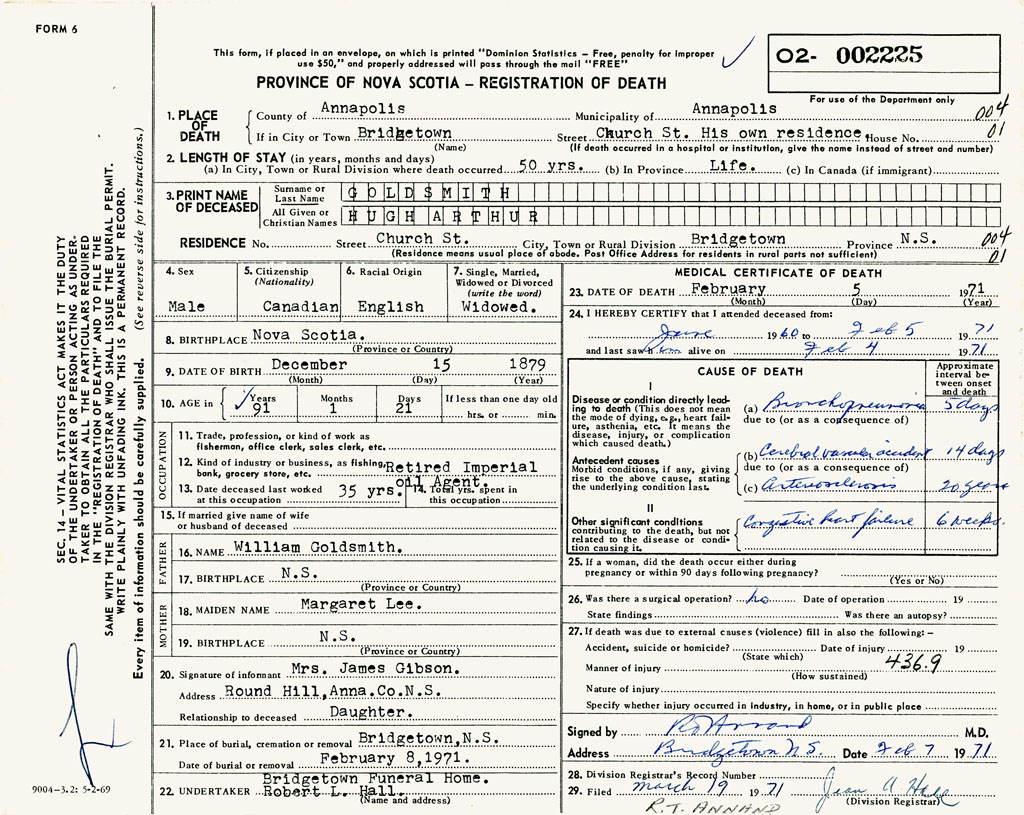 FORM 6
This form, if placed in an envelope, on which is printed "Dominion Statistics – Free, penalty for improper
use $50," and properly addressed will pass through the mail "FREE"
O2- 002225
For use of the Department only
PROVINCE OF NOVA SCOTIA – REGISTRATION OF DEATH
1. PLACE OF DEATH
County of Annapolis Municipality of Annapolis 004
If in City or Town Bridgetown Street Church St. His own residence. House No. 01
(Name) (If death occurred in a hospital or institution, give the name instead of street and number)
2. LENGTH OF STAY (in years, months and days)
(a) In City, Town or Rural Division where death occurred 50 yrs. (b) In Province Life. (c) In Canada (if immigrant)
3. PRINT NAME OF DECEASED
Surname or Last Name GOLDSMITH
All Given or Christian Names HUGH ARTHUR
RESIDENCE No. Street Church St. City, Town or Rural Division Bridgetown Province N.S. 004
(Residence means usual place of abode. Post Office Address for residents in rural parts not sufficient) 01
4. Sex
Male
5. Citizenship
(Nationality)
Canadian
6. Racial Origin
English
7. Single, Married,
Widowed or Divorced
(write the word)
Widowed.
8. BIRTHPLACE Nova Scotia.
(Province or Country)
9. DATE OF BIRTH December 15 1879
(Month) (Day) (Year)
10. AGE in Years Months Days If less than one day old
91 1 21 hrs. or min.
OCCUPATION
11. Trade, profession, or kind of work as
fisherman, office clerk, sales clerk, etc.
12. Kind of industry or business, as fishing, Retired Imperial
bank, grocery store, etc. oil Agent.
13. Date deceased last worked 35 yrs. 14. Total yrs. spent in
at this occupation this occupation
15. If married give name of wife
or husband of deceased
FATHER
16. NAME William Goldsmith.
17. BIRTHPLACE N.S.
(Province or Country)
MOTHER
18. MAIDEN NAME Margaret Lee.
19. BIRTHPLACE N.S.
(Province or Country)
20. Signature of informant Mrs. James Gibson.
Address Round Hill, Anna.Co.N.S.
Relationship to deceased Daughter.
21. Place of burial, cremation or removal Bridgetown, N.S.
Date of burial or removal February 8, 1971.
Bridgetown Funeral Home.
22. UNDERTAKER Robert L. Hall.
(Name and address)
MEDICAL CERTIFICATE OF DEATH
23. DATE OF DEATH February 5 1971
(Month) (Day) (Year)
24. I HEREBY CERTIFY that I attended deceased from:
June 1960 to Feb 5 1971
and last saw him alive on Feb 4 1971
CAUSE OF DEATH
Approximate
interval be-
tween onset
and death
I
Disease or condition directly lead-
ing to death (This does not mean
the mode of dying, e.g., heart fail-
ure, asthenia, etc. It means the
disease, injury, or complication
which caused death.)
(a) Bronchopneumonia 5 days
due to (or as a consequence of)
Antecedent causes
Morbid conditions, if any, giving
rise to the above cause, stating
the underlying condition last.
(b) Cerebral vascular accident 14 days
due to (or as a consequence of)
(c) Arteriosclerosis 20 years
II
Other significant conditions
contributing to the death, but not
related to the disease or condi-
tion causing it.
Congestive heart failure 6 weeks.
25. If a woman, did the death occur either during
pregnancy or within 90 days following pregnancy?
(Yes or No)
26. Was there a surgical operation? no Date of operation 19
State findings Was there an autopsy?
27. If death was due to external causes (violence) fill in also the following: –
Accident, suicide or homicide? Date of injury 19
(State which)
Manner of injury 436.9
(How sustained)
Nature of injury
Specify whether injury occurred in industry, in home, or in public place
Signed by R T Annand M.D.
Address Bridgetown N S. Date Feb 7 1971
28. Division Registrar's Record Number
29. Filed March 19 1971 Jean A. Hall
(Division Registrar)
R.T. ANNAND
SEC. 14 – VITAL STATISTICS ACT MAKES IT THE DUTY
OF THE UNDERTAKER OR PERSON ACTING AS UNDER-
TAKER TO OBTAIN ALL THE PARTICULARS REQUIRED
IN THE "REGISTRATION OF DEATH" AND TO FILE THE
SAME WITH THE DIVISION REGISTRAR WHO SHALL ISSUE THE BURIAL PERMIT.
WRITE PLAINLY WITH UNFADING INK. THIS IS A PERMANENT RECORD.
Every item of information should be carefully supplied. (See reverse side for instructions.)
9004-3.2: 5-2-69